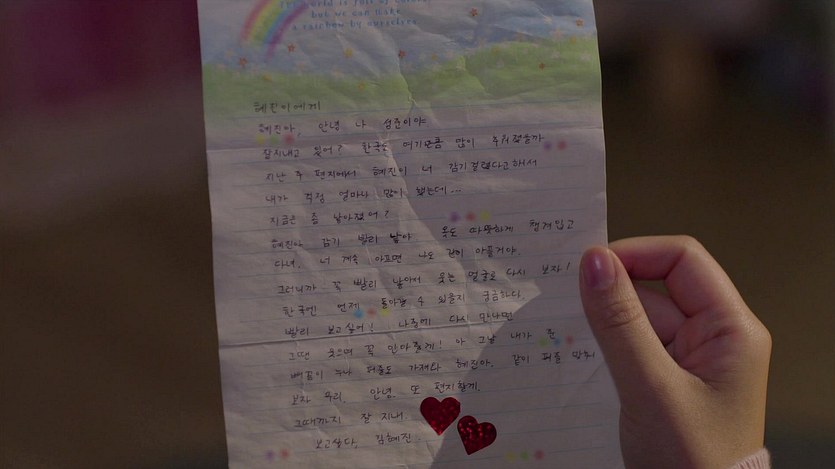 but we can make
a rainbow by ourselves
혜진이에게
혜진아, 안녕 나 성준이야
잘지내고 있어? 한국은 여기만큼 많이 추워졌을까
지난 주 편지에서 혜진이 너 감기 걸렸다고해서
내가 걱정 얼마나 많이 했는데...
지금은 좀 나아졌어?
혜진아 감기 빨리 낳아 옷도 따뜻하게 챙겨입고
다녀. 너 계속 아프면 나도 같이 아플거야.
그러니까 꼭 빨리 낳아서 웃는 얼굴로 다시 보자!
한국엔 언제 돌아갈 수 있을지 궁금하다.
빨리 보고싶어! 나중에 다시 만나면
그땐 웃으며 꼭 안아줄게! 아 그날 내가 준
삐꼼이 누나 퍼즐도 가져와 혜진아. 같이 퍼즐
보자 우리. 안녕. 또 편지할게.
그때까지 잘 지내
보고싶다, 김혜진.